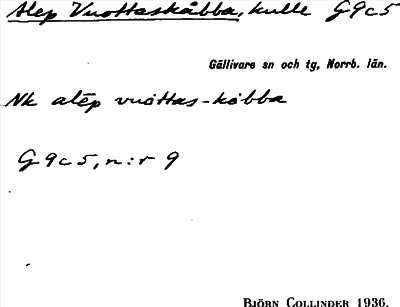 Alep Vuottaskåbba, kulle G9c5
Gällivare sn och tg, Norrb. län.
Nk alēp vuòttas-kòbba
G9c5, n:r 9
BJÖRN COLLINDER 1936.